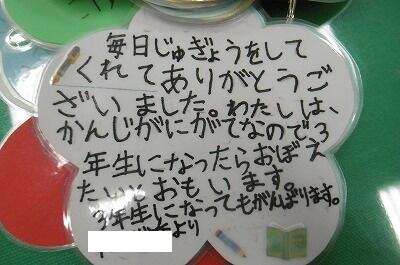 毎日じゅぎょうをして
くれてありがとうご
ざいました。わたしは、
かんじがにがてなので3
年生になったらおぼえ
たいとおもいます。
3年生になってもがんばります。
より